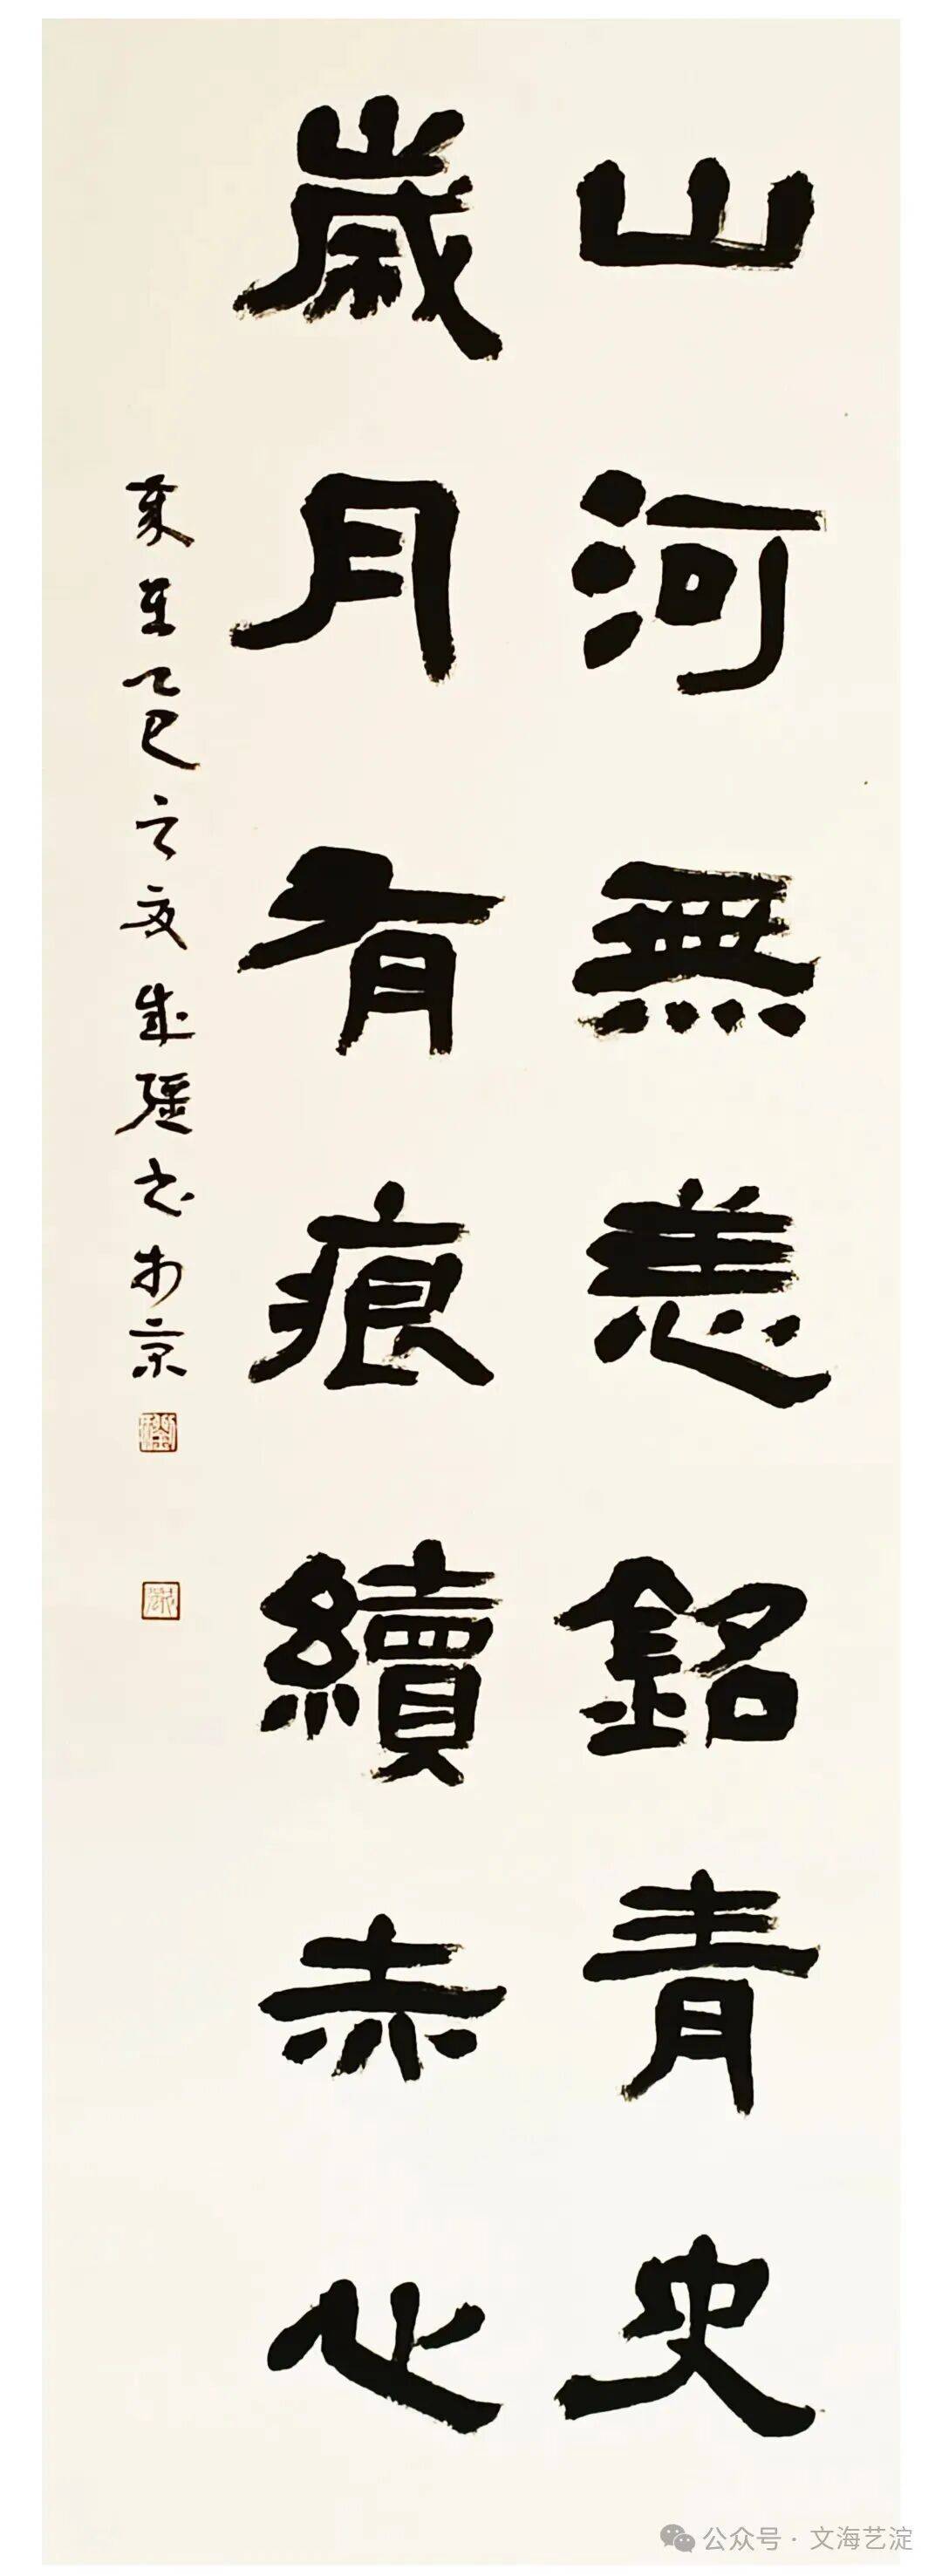 山河無恙銘青史
歲月有痕續赤心
歲在乙巳之夏成強書於京
公众号·文海艺淀